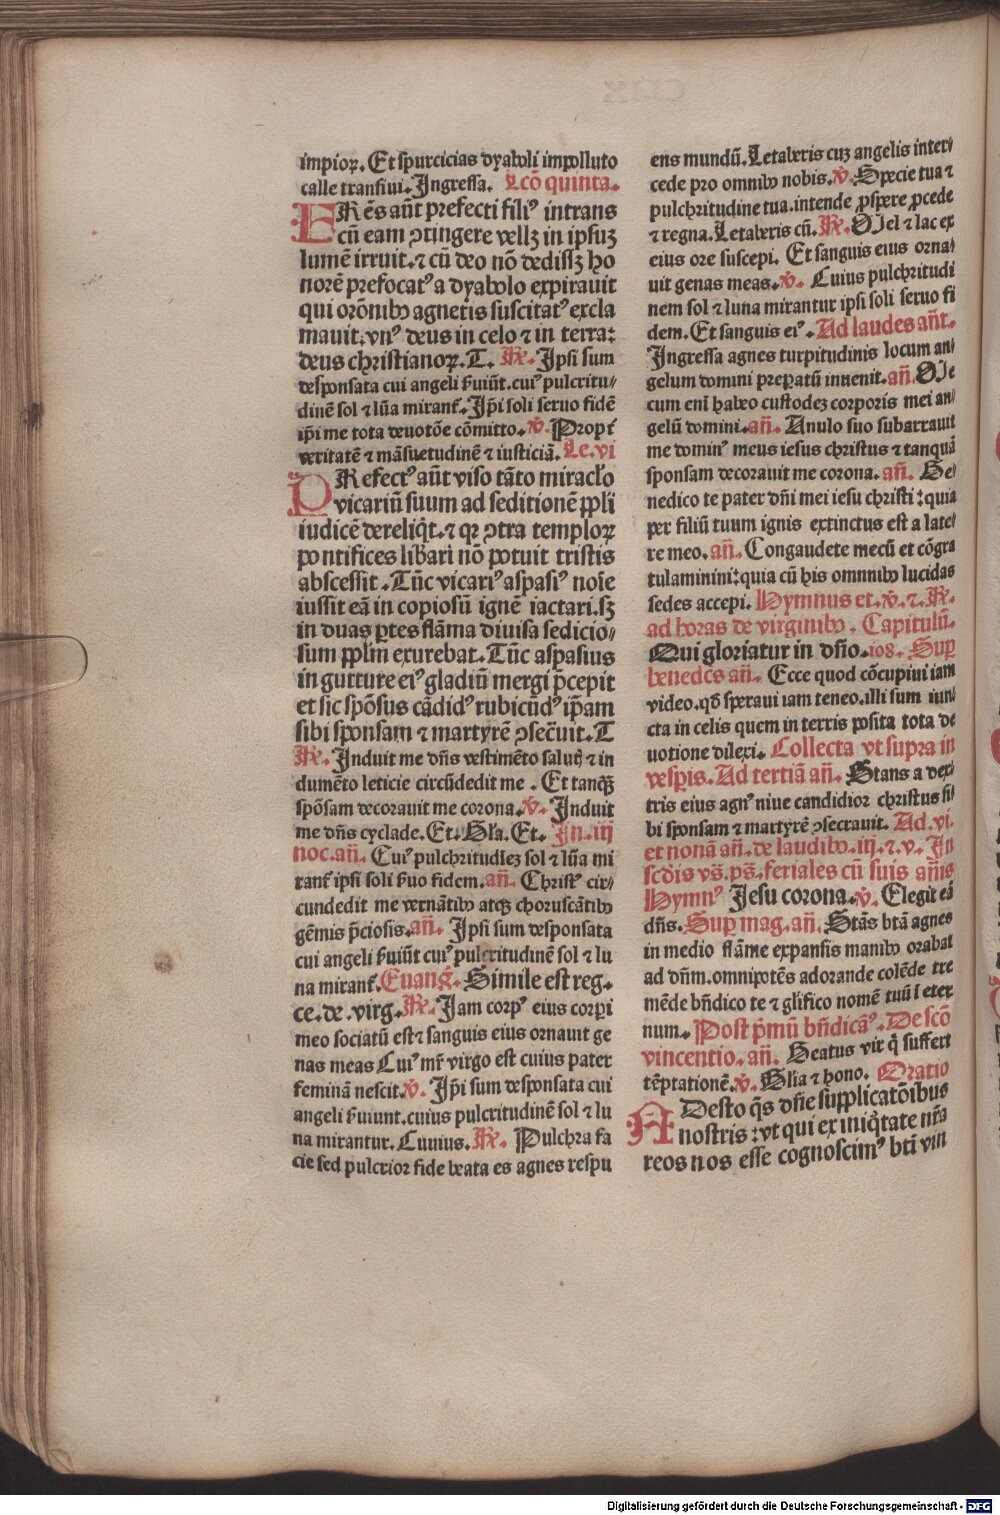 impioꝝ. Et spurcicias dyaboli impolluto
calle transiui. Ingressa. Lcõ quinta.
ERẽs aũt prefecti filiꝰ intrans
cũ eam ꝯtingere vellꝫ in ipsuꝫ
lumẽ irruit. ⁊ cũ deo nõ dedissꝫ ho
norẽ prefocatꝰ a dyabolo expirauit
qui orõnibꝰ agnetis suscitatꝰ excla
mauit: vnꝰ deus in celo ⁊ in terra:
deus christianoꝝ. T. R̃. Ipsi sum
desponsata cui angeli ẜuiũt. cuiꝰ pulcritu/
dinẽ sol ⁊ lũa mirant᷑. Ip̃i soli seruo fidẽ
ip̃i me tota deuotõe cõmitto. v̊. Propt᷑
veritatẽ ⁊ mãsuetudinẽ ⁊ iusticiã. Le. vi
PRefectꝰ aũt viso tãto miraclo
vicariũ suum ad seditionẽ ppli
iudicẽ dereliq̃t. ⁊ qꝛ ꝯtra temploꝝ
pontifices liƀari nõ potuit tristis
abscessit. Tũc vicariꝰ aspasiꝰ noĩe
iussit eã in copiosũ ignẽ iactari. sꝫ
in duas ꝑtes flãma diuisa sedicio/
sum pplm̃ exurebat. Tũc aspasius
in gutture eiꝰ gladiũ mergi p̃cepit
et sic spõsus cãdidꝰ rubicũdꝰ ip̃am
sibi sponsam ⁊ martyrẽ ꝯsec̃uit. T
R̃. Induit me dñs vestimẽto salutꝭ ⁊ in
dumẽto leticie circũdedit me. Et tanqꝫ̃
spõsam decorauit me corona. v̊. Induit
me dñs cyclade. Et. Gl̃a. Et. In. iij
noc. añ. Cuiꝰ pulchritudieꝫ sol ⁊ lũa mi
rant᷑ ipsi soli ẜuo fidem. añ. Christꝰ cir/
cundedit me vernãtibꝰ atqꝫ choruscãtibꝰ
gẽmis p̃ciosis. añ. Ipsi sum desponsata
cui angeli ẜuiũt cuiꝰ pulcritudinẽ sol ⁊ lu
na mirant᷑. Euang̃. Simile est reg.
ce. de. virg. R̃. Iam corpꝰ eius corpi
meo sociatũ est ⁊ sanguis eius ornauit ge
nas meas Cuiꝰ mr̃ virgo est cuius pater
feminã nescit. v̊. Ip̃i sum desponsata cui
angeli ẜuiunt. cuius pulcritudinẽ sol ⁊ lu
na mirantur. Cuuius. R̃. Pulchra fa
cie sed pulcrior fide beata es agnes respu
ens mundũ. Letaberis cuꝫ angelis inter/
cede pro omnibꝰ nobis. v̊. Specie tua ⁊
pulchritudine tua. intende ꝓspere ꝓcede
⁊ regna. Letaberis cũ. R̃. Mel ⁊ lac ex
eius ore suscepi. Et sanguis eius orna/
uit genas meas. v̊. Cuius pulchritudi
nem sol ⁊ luna mirantur ipsi soli seruo fi
dem. Et sanguis eiꝰ. Ad laudes añt.
Ingressa agnes turpitudinis locum an/
gelum domini preparatũ inuenit. añ. Me
cum eni᷑ habeo custodeꝫ corporis mei an/
gelũ domini. añ. Anulo suo subarrauit
me dominꝰ meus iesus christus ⁊ tanquã
sponsam decorauit me corona. añ. Be/
nedico te pater dñi mei iesu christi: quia
per filiũ tuum ignis extinctus est a late/
re meo. añ. Congaudete mecũ et cõgra
tulaminini: quia cũ his omnnibꝰ lucidas
sedes accepi. Hymnus et. v̊. ⁊. R̃.
ad horas de virginibꝰ. Capitulũ.
Qui gloriatur in dño. 108. Sup
benedcs añ. Ecce quod cõcupiui iam
video. qd̃ speraui iam teneo. illi sum iun/
cta in celis quem in terris posita tota de
uotione dilexi. Collecta vt supra in
vesp̃is. Ad tertiã añ. Stans a dex/
tris eius agnꝰ niue candidior christus si/
bi sponsam ⁊ martyrẽ ꝯsecrauit. Ad. vi.
et nonã añ. de laudibꝰ. iij. ⁊. v. In
scdis vs̃. ps̃. feriales cũ suis añis
Hymnꝰ Iesu corona. v̊. Elegit eã
dñs. Sup mag. añ. Stãs btã agnes
in medio flãme expansis manibꝰ orabat
ad dñm. omnipotẽs adorande colẽde tre
mẽde bñdico te ⁊ gl̃ifico nomẽ tuũ ĩ eter
num. Post pm̃ũ bñdicãꝰ. De scõ
vincentio. añ. Beatus vir q̃ suffert
tẽptationẽ. v̊. Gl̃ia ⁊ hono. Oratio
ADesto q̃s dñe supplicatõibus
nostris: vt qui ex iniq̃tate nr̃a
reos nos esse cognoscimꝰ bti᷑ vin
Digitalisierung gefördert durch die Deutsche Forschungsgemeinschaft - DFG